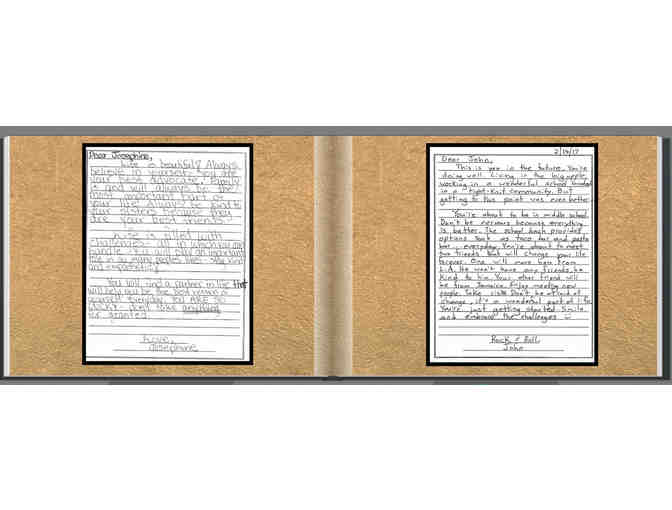 Dear Josephine,
Life is beautiful! Always
believe in yourself. You are
your best advocate. Family
is and will always be the
most important part of
your life. Always be kind to
your sisters because they
are your best friends.
Life is filled with
challenges - all in which you can
handle. You will play an important
role in so many peoples lives. Stay kind
and
You will find a partner in life that
will help you be the best version of
yourself everyday. You ARE SO
lucky - don't take anything
for granted.
Love,
Josephine
2/14/17
Dear John,
This is you in the future. You're
doing well living in the big apple,
working in a wonderful school
in a tight-knit community. But
getting to this point was even better.
You're about to be in middle school.
Don't be nervous because everything
is better. The school lunch provides
options such as taco bar and pasta
bar, everyday. You're about to meet
two friends that will change your life
forever. One will move here from
L.A. He won't have any friends, be
kind to him. Your other friend will
be from Jamaica. Enjoy meeting new
people. Take risks. Don't be afraid of
change, it's a wonderful part of life.
You're just getting started. Smile,
and embrace the challenges ☺
Rock & Roll,
John